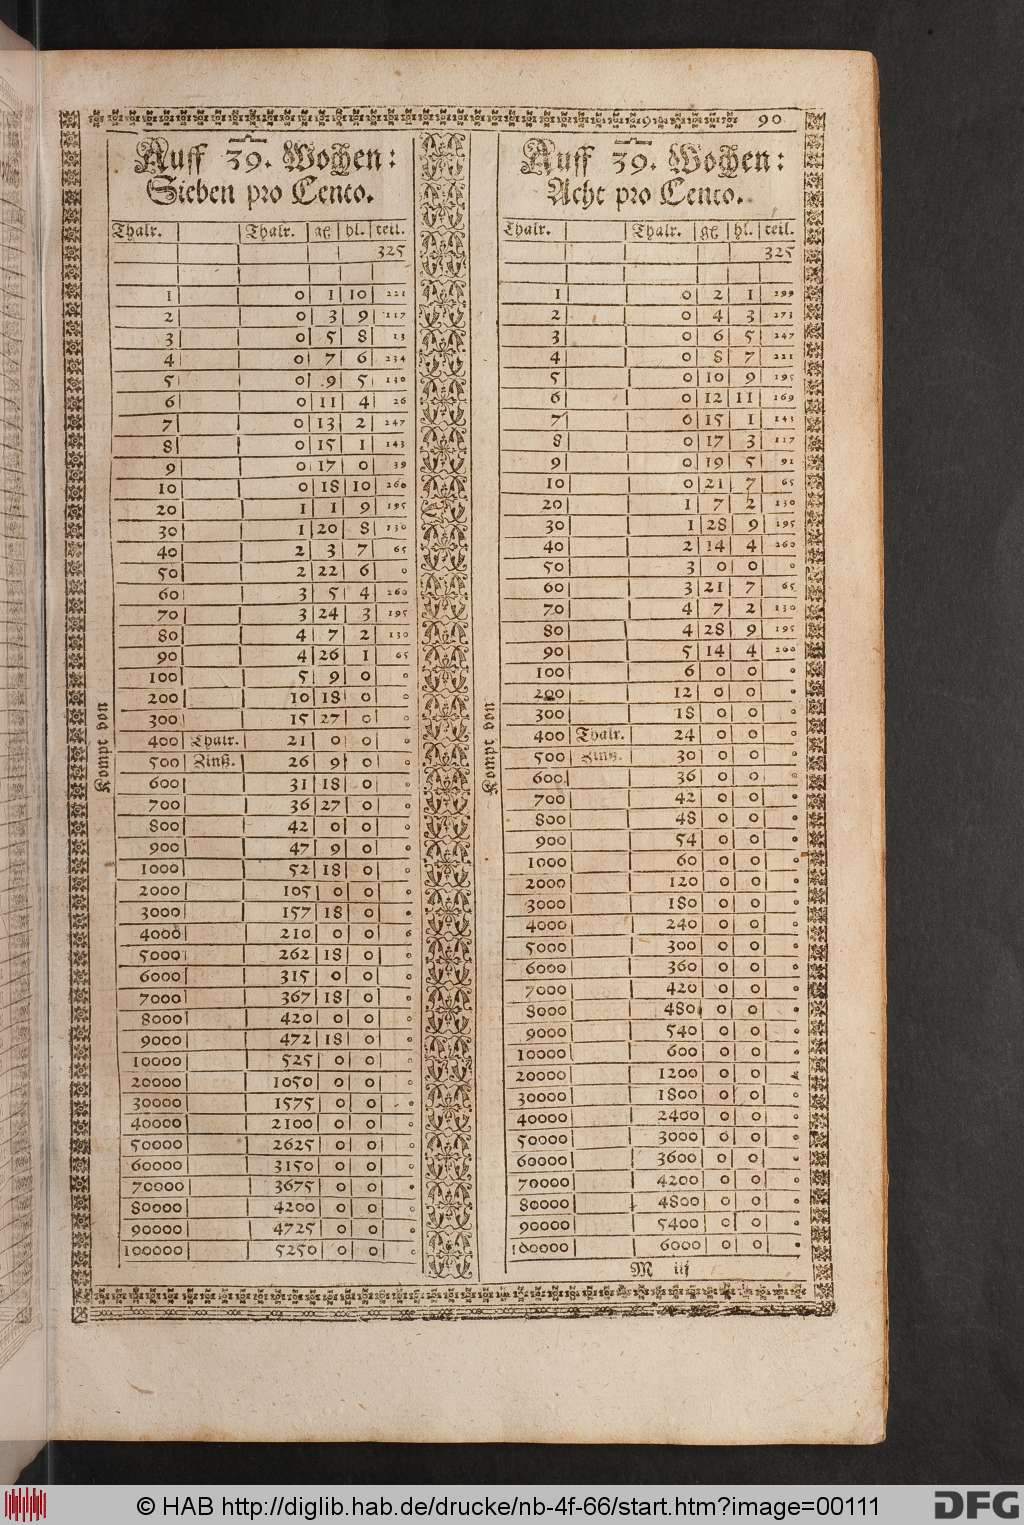 90
Auff 39. Wochen:
Sieben pro Cento.
Thalr. Thalr. gß hl. teil.
325
1 0 1 10 221
2 0 3 9 117
3 0 5 8 13
4 0 7 6 234
5 0 9 5 130
6 0 11 4 26
7 0 13 2 247
8 0 15 1 143
9 0 17 0 39
10 0 18 10 260
20 1 1 9 195
30 1 20 8 130
40 2 3 7 65
50 2 22 6 0
60 3 5 4 260
70 3 24 3 195
80 4 7 2 130
90 4 26 1 65
100 5 9 0 0
200 10 18 0 0
300 15 27 0 0
400 Thalr. 21 0 0 0
500 Zinß. 26 9 0 0
600 31 18 0 0
700 36 27 0 0
800 42 0 0 0
900 47 9 0 0
1000 52 18 0 0
2000 105 0 0 0
3000 157 18 0 0
4000 210 0 0 0
5000 262 18 0 0
6000 315 0 0 0
7000 367 18 0 0
8000 420 0 0 0
9000 472 18 0 0
10000 525 0 0 0
20000 1050 0 0 0
30000 1575 0 0 0
40000 2100 0 0 0
50000 2625 0 0 0
60000 3150 0 0 0
70000 3675 0 0 0
80000 4200 0 0 0
90000 4725 0 0 0
100000 5250 0 0 0
Kompt von
Auff 39. Wochen:
Acht pro Cento.
Thalr. Thalr. gß hl. teil.
325
1 0 2 1 299
2 0 4 3 273
3 0 6 5 247
4 0 8 7 221
5 0 10 9 195
6 0 12 11 169
7 0 15 1 143
8 0 17 3 117
9 0 19 5 91
10 0 21 7 65
20 1 7 2 130
30 1 28 9 195
40 2 14 4 260
50 3 0 0 0
60 3 21 7 65
70 4 7 2 130
80 4 28 9 195
90 5 14 4 260
100 6 0 0 0
200 12 0 0 0
300 18 0 0 0
400 Thalr. 24 0 0 0
500 Zinß. 30 0 0 0
600 36 0 0 0
700 42 0 0 0
800 48 0 0 0
900 54 0 0 0
1000 60 0 0 0
2000 120 0 0 0
3000 180 0 0 0
4000 240 0 0 0
5000 300 0 0 0
6000 360 0 0 0
7000 420 0 0 0
8000 480 0 0 0
9000 540 0 0 0
10000 600 0 0 0
20000 1200 0 0
30000 1800 0 0 0
40000 2400 0 0 0
50000 3000 0 0 0
60000 3600 0 0 0
70000 4200 0 0 0
80000 4800 0 0 0
90000 5400 0 0 0
100000 6000 0 0 0
Kompt von
M iij
© HAB http://diglib.hab.de/drucke/nb-4f-66/start.htm?image=00111
DFG